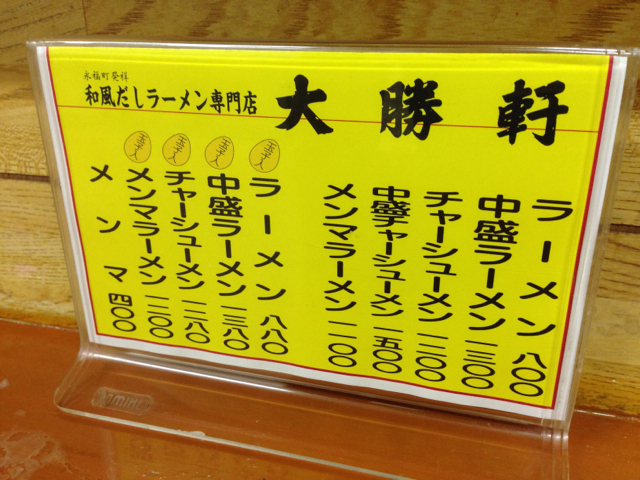 永福町発祥
和風だしラーメン専門店
大勝軒
ラーメン 八〇〇
中盛ラーメン 一三〇〇
チャーシューメン 一二〇〇
中盛チャーシューメン 一五〇〇
メンマラーメン 一一〇〇
玉子入 ラーメン 八八〇
玉子入 中盛ラーメン 一三八〇
玉子入 チャーシューメン 一二八〇
玉子入 メンマラーメン 一二〇〇
メンマ 四〇〇